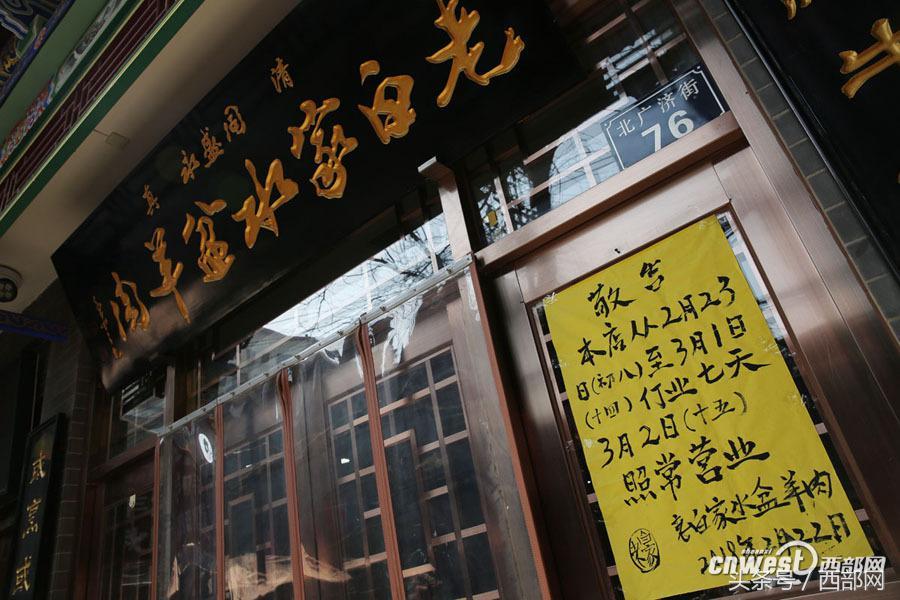 老白家水盆羊肉
清
同盛永
真
北广济街
76
敬告
本店从2月23
日(初八)至3月1日
(十四)行业七天
3月2日(十五)
照常营业
老白家水盆羊肉
2018年2月22日
shaanxi
cnwest 西部网
头条号/西部网